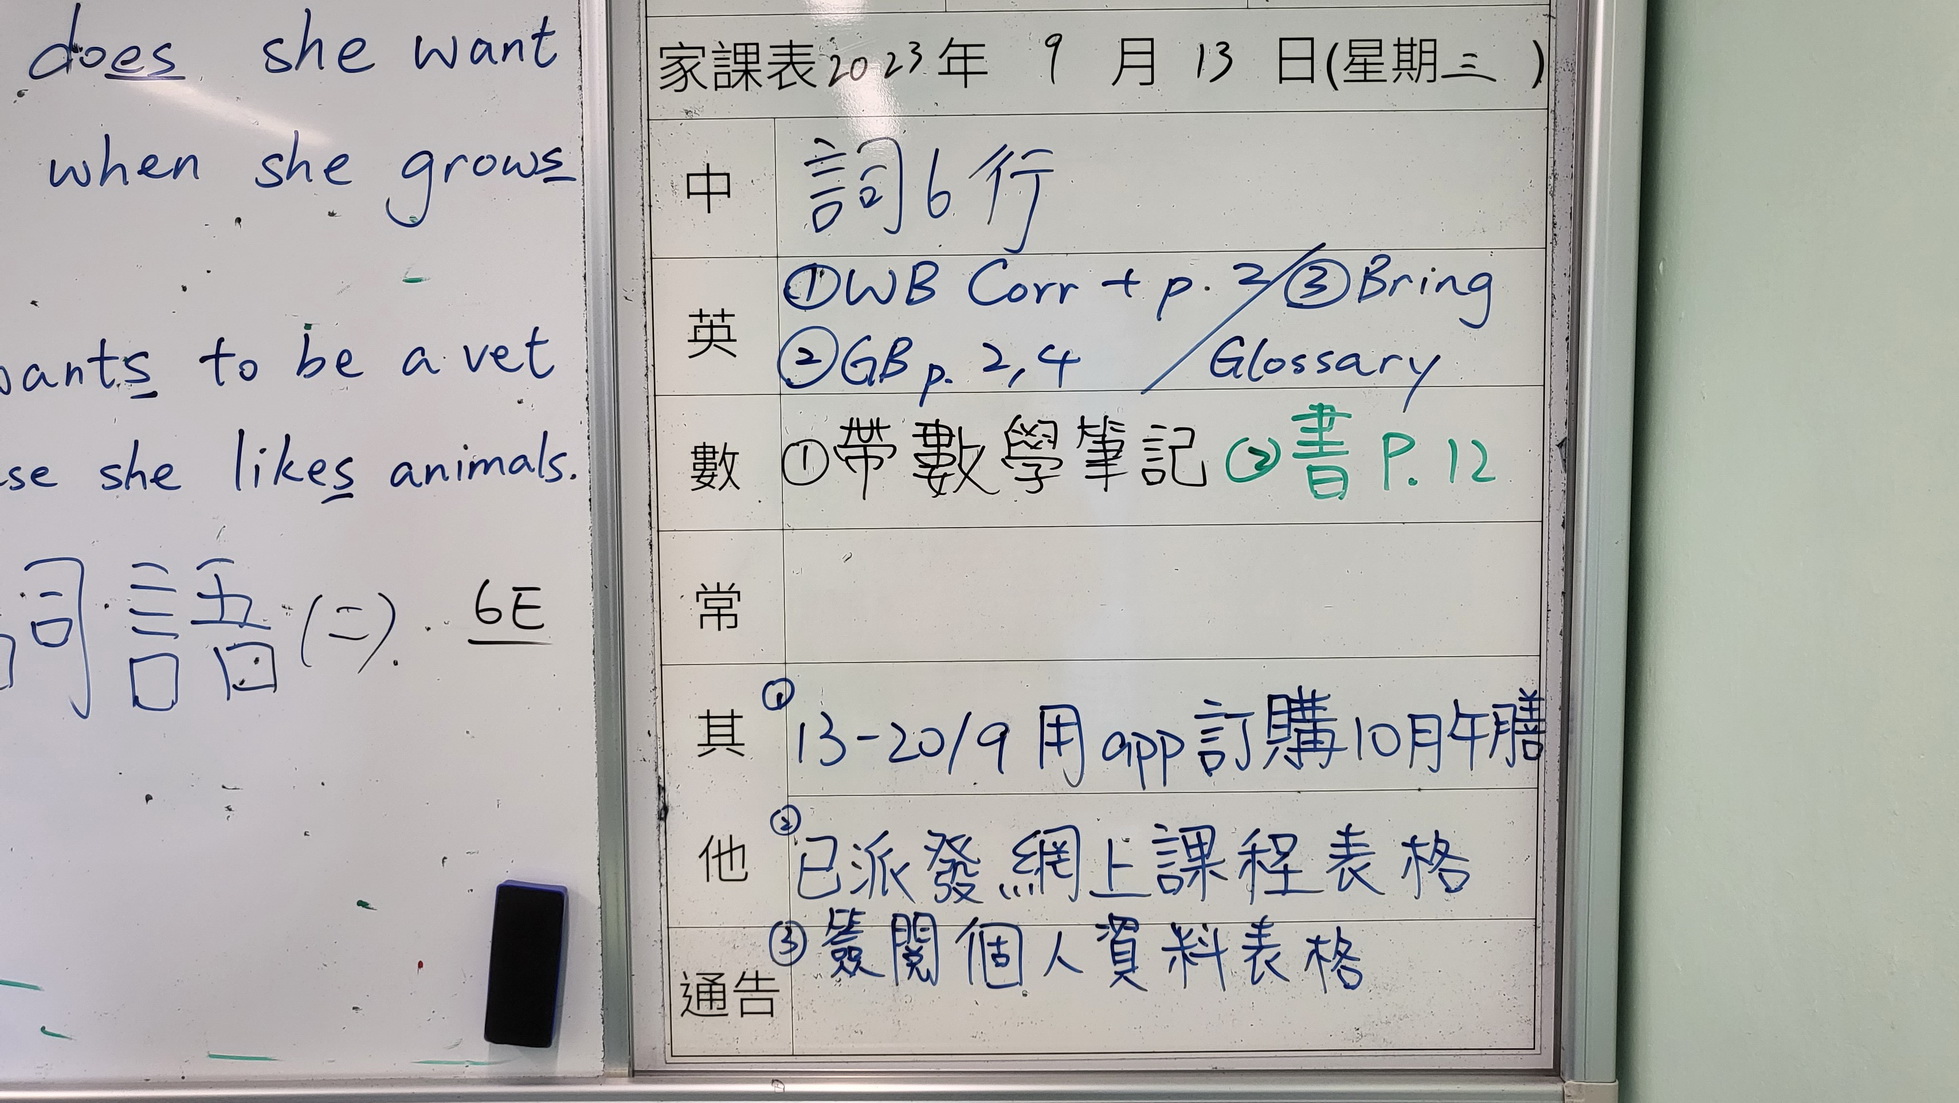 does she want
when she grows
wants to be a vet
se she likes animals.
詞語(二). 6E
家課表2023年 9 月 13 日(星期三 )
中 詞6行
英 ①WB Corr + p. 2/③Bring
②GB p. 2,4 / Glossary
數 ①帶數學筆記②書 P. 12
常
其他 ①13-20/9 用app訂購10月午膳
②已派發網上課程表格
③簽閱個人資料表格
通告